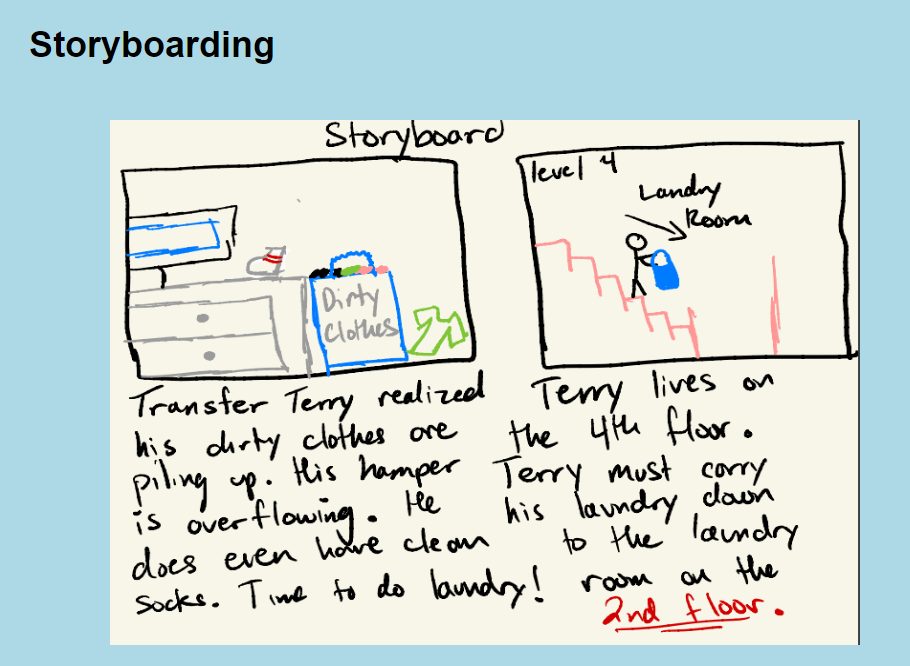 Storyboarding
Storyboard
Dirty
Clothes
Transfer Terry realized
his dirty clothes are
piling up. His hamper
is overflowing. He
does even have clean
socks. Time to do laundry!
level 4
Landry
Room
Terry lives on
the 4th floor.
Terry must carry
his laundry down
to the laundry
room on the
2nd floor.